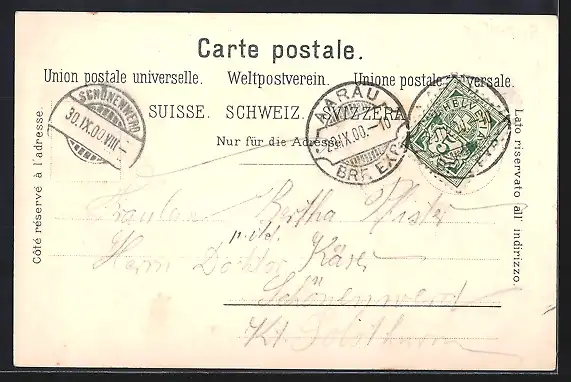 Carte postale.
Union postale universelle. Weltpostverein. Unione postale universale.
SUISSE. SCHWEIZ. SVIZZERA.
Nur für die Adresse.
Côté réservé à l'adresse.
Lato riservato all' indirizzo.
SCHÖNENWERD
30.IX.00.VIII
AARAU
29.IX.00.-10
BRF. EXP.
HELVETIA
5
Fräulein Bertha Pfister
p. Ad.
Herrn Doktor Käser
Schönenwerd
Kt. Solothurn